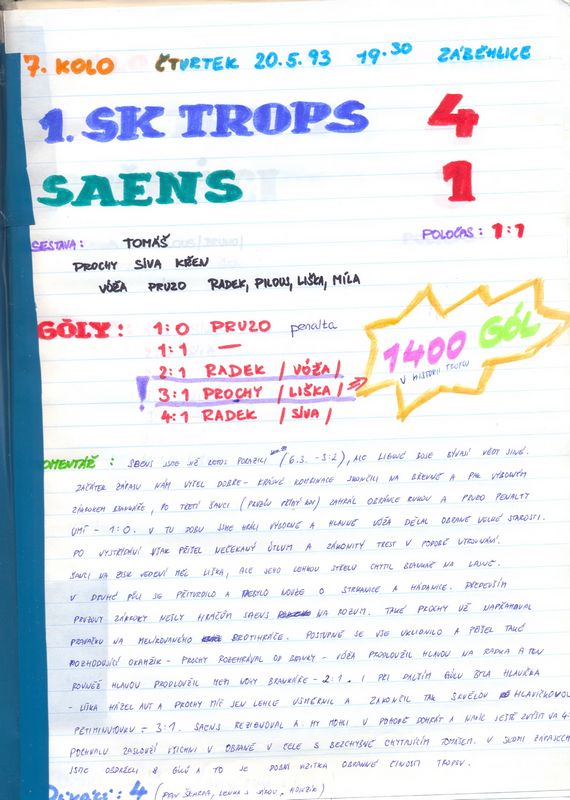 7. KOLO ČTVRTEK 20.5.93 19.30 ZÁBĚHLICE
1. SK TROPS 4
SAENS 1
SESTAVA: TOMÁŠ POLOČAS: 1:1
PROCHY SÍVA KŘEN
VÓŽA PRUZO RADEK, PILOUS, LIŠKA, MÍLA
GÓLY: 1:0 PRUZO penalta
1:1 —
2:1 RADEK /VÓŽA/
! 3:1 PROCHY /LIŠKA/
4:1 RADEK /SÍVA/
1400 GÓL
V HISTORII TROPSU
OMENTÁŘ: SAENS JSME UŽ LETOS PORAZILI (6.3. - 5:2), ALE LIGOVÉ BOJE BÝVAJÍ VŽDY JINÉ.
ZAČÁTEK ZÁPASU NÁM VYŠEL DOBŘE - KRÁSNÉ KOMBINACE SKONČILI NA BŘEVNĚ A PAK VÝBORNÝM
ZÁKROKEM BRANKÁŘE, PO TŘETÍ ŠANCI (PRUZŮV PŘÍMÝ KOP) ZAHRÁL OBRÁNCE RUKOU A PRUZO PENALTY
UMÍ - 1:0. V TU DOBU JSME HRÁLI VÝBORNĚ A HLAVNĚ VÓŽA DĚLAL OBRANĚ VELKÉ STAROSTI.
PO VYSTŘÍDÁNÍ VŠAK PŘIŠEL NEČEKANÝ ÚTLUM A ZÁKONITÝ TREST V PODOBĚ VYROVNÁNÍ.
ŠANCI NA ZISK VEDENÍ MĚL LIŠKA, ALE JEHO LEHKOU STŘELU CHYTIL BRANKÁŘ NA LAJNĚ.
V DRUHÉ PŮLI SE PŘITVRDILO A NEBYLO NOUZE O STRKANICE A HÁDANICE. PŘEDEVŠÍM
PRUZOVY ZÁKROKY NEŠLY HRÁČŮM SAENS NA ROZUM. TAKÉ PROCHY UŽ NAPŘAHOVAL
PRAVAČKU NA MELÍROVANÉHO PROTIHRÁČE. POSTUPNĚ SE VŠE UKLIDNILO A PŘIŠEL TAKÉ
ROZHODUJÍCÍ OKAMŽIK - PROCHY ROZEHRÁVAL OD BRANKY - VÓŽA PRODLOUŽIL HLAVOU NA RADKA A TEN
ROVNĚŽ HLAVOU PRODLOUŽIL MEZI NOHY BRANKÁŘE - 2:1. I PŘI DALŠÍM GÓLU BYLA HLAVIČKA
- LIŠKA HÁZEL AUT A PROCHY MÍČ JEN LEHCE USMĚRNIL A ZAKONČIL TAK SKVĚLOU HLAVIČKOVOU
PĚTIMINUTOVKU - 3:1. SAENS REZIGNOVAL A MY MOHLI V POHODĚ DOHRÁT A NAVÍC JEŠTĚ ZVÝŠIT NA 4:
POCHVALU ZASLOUŽÍ VŠICHNI V OBRANĚ V ČELE S BEZCHYBNĚ CHYTAJÍCÍM TOMÁŠEM. V SEDMI ZÁPASECH
JSME OBDRŽELI 8 GÓLŮ A TO JE DOBRÁ VIZITKA OBRANNÉ ČINNOSTI TROPSU.
DIVÁCI: 4